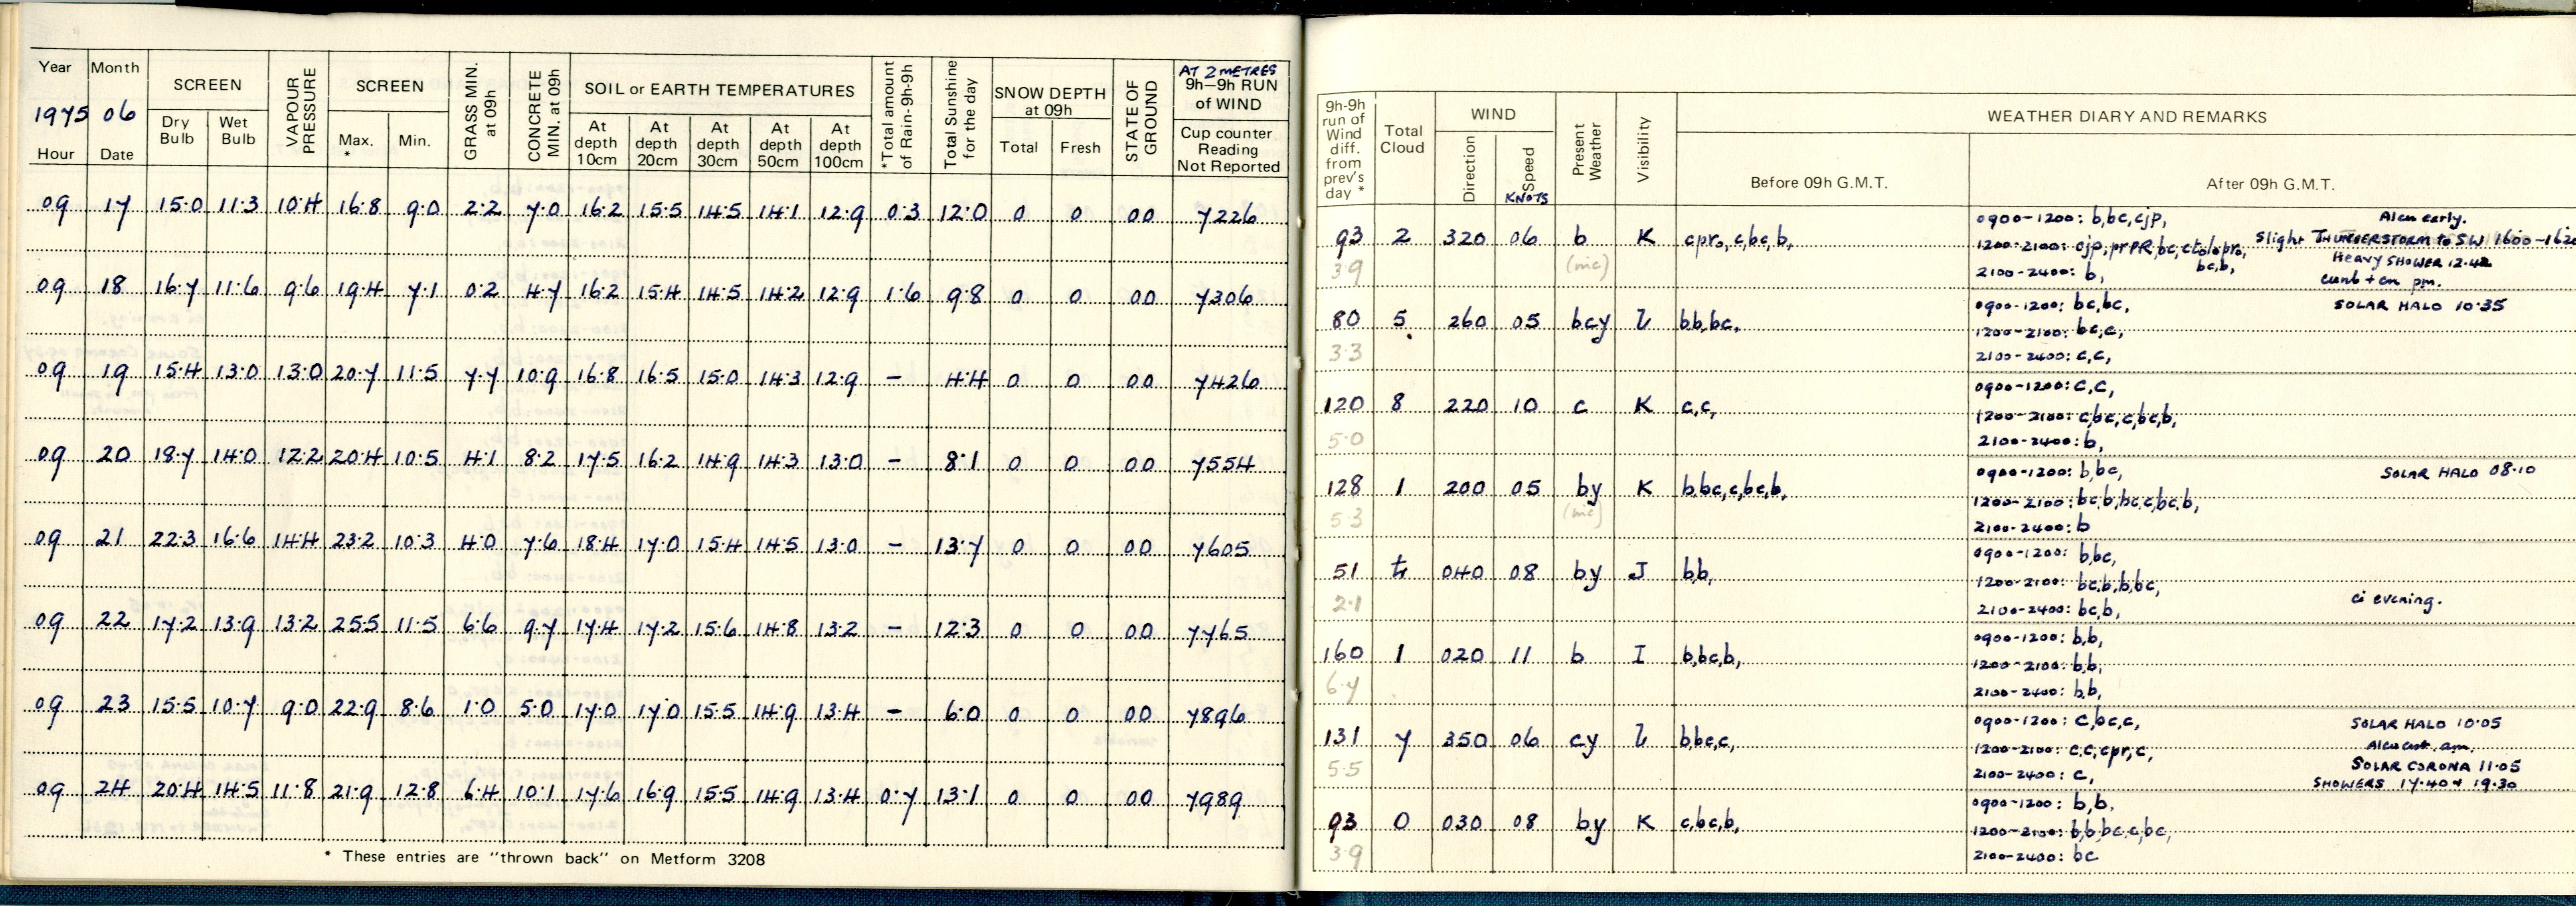 Year Month SCREEN VAPOUR PRESSURE SCREEN GRASS MIN. at 09h CONCRETE MIN. at 09h SOIL or EARTH TEMPERATURES *Total amount of Rain-9h-9h Total Sunshine for the day SNOW DEPTH at 09h STATE OF GROUND AT 2 METRES 9h–9h RUN of WIND
1975 06
Hour Date Dry Bulb Wet Bulb Max. * Min. At depth 10cm At depth 20cm At depth 30cm At depth 50cm At depth 100cm Total Fresh Cup counter Reading Not Reported
09 17 15.0 11.3 10.4 16.8 9.0 2.2 7.0 16.2 15.5 14.5 14.1 12.9 0.3 12.0 0 0 00 7226
09 18 16.7 11.6 9.6 19.4 7.1 0.2 4.7 16.2 15.4 14.5 14.2 12.9 1.6 9.8 0 0 00 7306
09 19 15.4 13.0 13.0 20.7 11.5 7.7 10.9 16.8 16.5 15.0 14.3 12.9 – 4.4 0 0 00 7426
09 20 18.7 14.0 12.2 20.4 10.5 4.1 8.2 17.5 16.2 14.9 14.3 13.0 – 8.1 0 0 00 7554
09 21 22.3 16.6 14.4 23.2 10.3 4.0 7.6 18.4 17.0 15.4 14.5 13.0 – 13.7 0 0 00 7605
09 22 17.2 13.9 13.2 25.5 11.5 6.6 9.7 17.4 17.2 15.6 14.8 13.2 – 12.3 0 0 00 7765
09 23 15.5 10.7 9.0 22.9 8.6 1.0 5.0 17.0 17.0 15.5 14.9 13.4 – 6.0 0 0 00 7896
09 24 20.4 14.5 11.8 21.9 12.8 6.4 10.1 17.6 16.9 15.5 14.9 13.4 0.7 13.1 0 0 00 7989
* These entries are "thrown back" on Metform 3208
9h-9h run of Wind diff. from prev's day * Total Cloud WIND Present Weather Visibility WEATHER DIARY AND REMARKS
Direction Speed KNOTS Before 09h G.M.T. After 09h G.M.T.
0900-1200: b,bc,cjp, Alcu early.
93 2 320 06 b K cpr₀,c,bc,b, 1200-2100: cjp,prPR,bc, Slight THUNDERSTORM to SW 1600-162
3.9 2100-2400: b, bc,b, HEAVY SHOWER 12.42
cumb + cn pm.
0900-1200: bc,bc, SOLAR HALO 10.35
80 5 260 05 bcy b,b,bc, 1200-2100: bc,c,
3.3 2100-2400: c,c,
0900-1200: c,c,
120 8 220 10 c K c,c, 1200-2100: c,bc,c,bc,b,
5.0 2100-2400: b,
0900-1200: b,bc, SOLAR HALO 08.10
128 1 200 05 by K b,bc,c,bc,b, 1200-2100: bc,b,bc,c,bc,b,
5.3 2100-2400: b
0900-1200: b,bc,
51 040 08 by J b,b, 1200-2100: bc,b,b,bc,
2.1 2100-2400: bc,b, ci evening.
0900-1200: b,b,
160 1 020 11 b I b,bc,b, 1200-2100: b,b,
6.7 2100-2400: b,b,
0900-1200: c,bc,c, SOLAR HALO 10.05
131 7 350 06 cy b,bc,c, 1200-2100: c,c,cpr,c, Alcu cast. am.
5.5 2100-2400: c, SOLAR CORONA 11.05
SHOWERS 17.40 & 19.30
0900-1200: b,b,
93 0 030 08 by K c,bc,b, 1200-2100: b,b,bc,c,bc,
3.9 2100-2400: bc